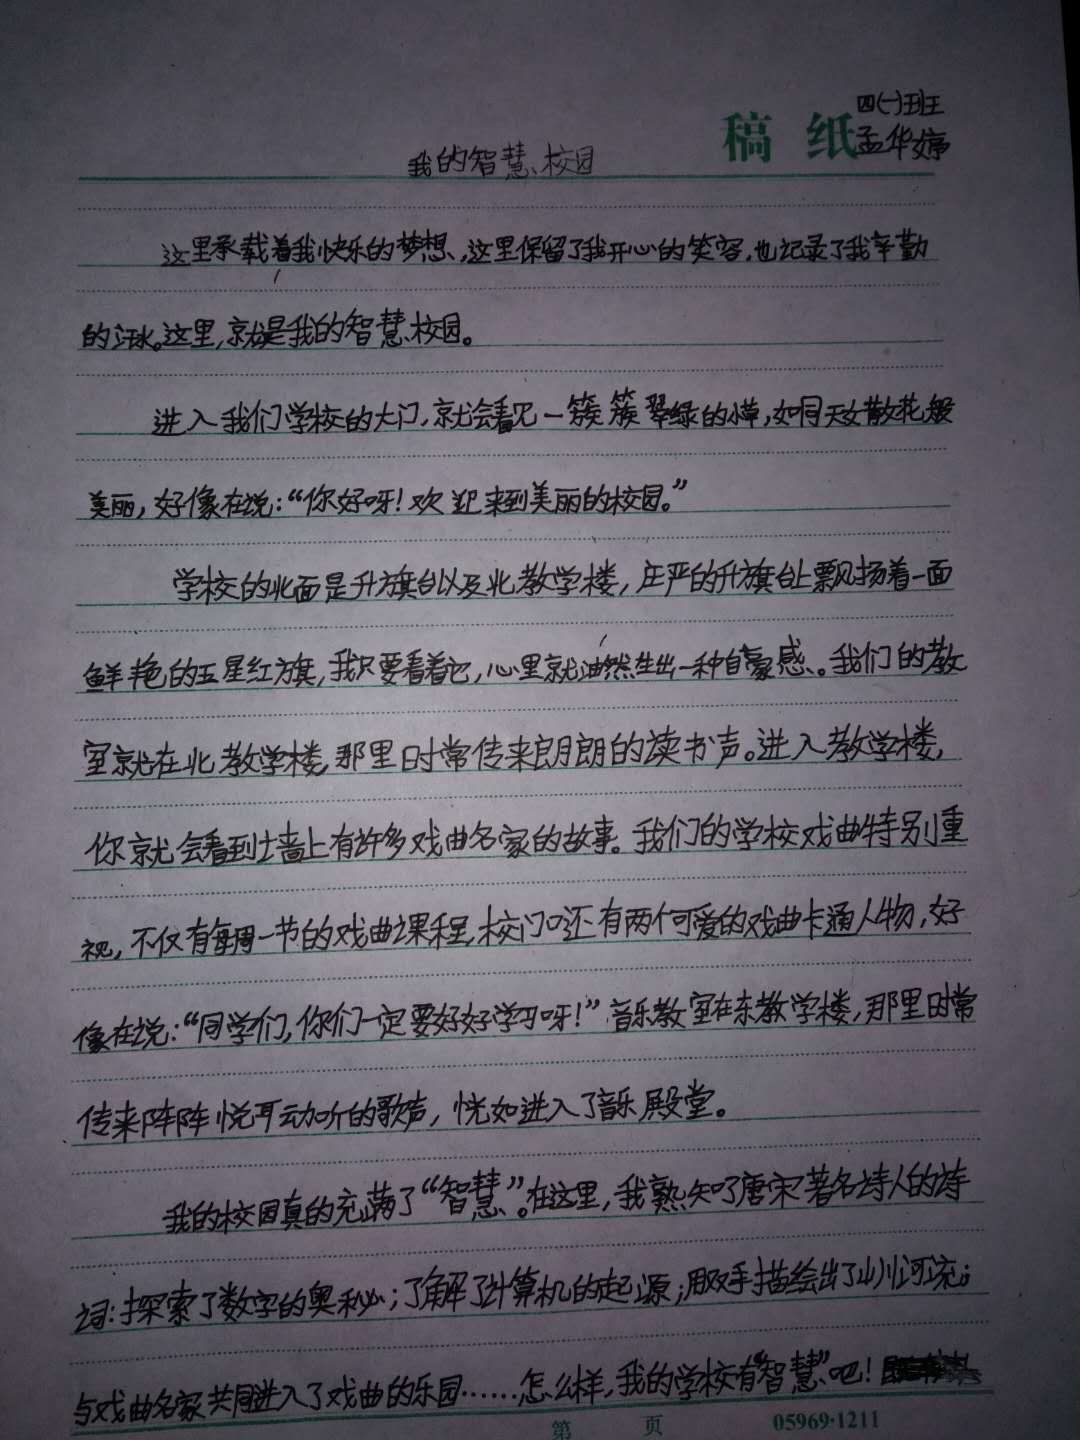 四(一)班
稿 纸
孟华婷
我的智慧校园
这里承载着我快乐的梦想,这里保留了我开心的笑容,也记录了我辛勤
的汗水。这里,就是我的智慧校园。
进入我们学校的大门,就会看见一簇簇翠绿的小草,如同天女散花般
美丽,好像在说:“你好呀!欢迎来到美丽的校园。”
学校的北面是升旗台以及北教学楼,庄严的升旗台上飘扬着一面
鲜艳的五星红旗,我只要看着它,心里就油然生出一种自豪感。我们的教
室就在北教学楼,那里时常传来朗朗的读书声。进入教学楼,
你就会看到墙上有许多戏曲名家的故事。我们的学校戏曲特别重
视,不仅有每周一节的戏曲课程,校门口还有两个可爱的戏曲卡通人物,好
像在说:“同学们,你们一定要好好学习呀!”音乐教室在东教学楼,那里时常
传来阵阵悦耳动听的歌声,恍如进入了音乐殿堂。
我的校园真的充满了“智慧”。在这里,我熟知了唐宋著名诗人的诗
词;探索了数字的奥秘;了解了计算机的起源;用双手描绘出了山川河流;
与戏曲名家共同进入了戏曲的乐园……怎么样,我的学校有“智慧”吧!
第 页 05969·1211